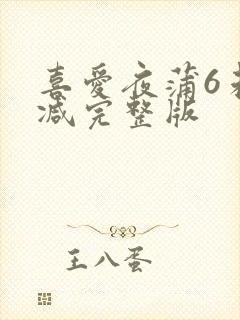 喜爱夜蒲6未
减完整版
王八蛋